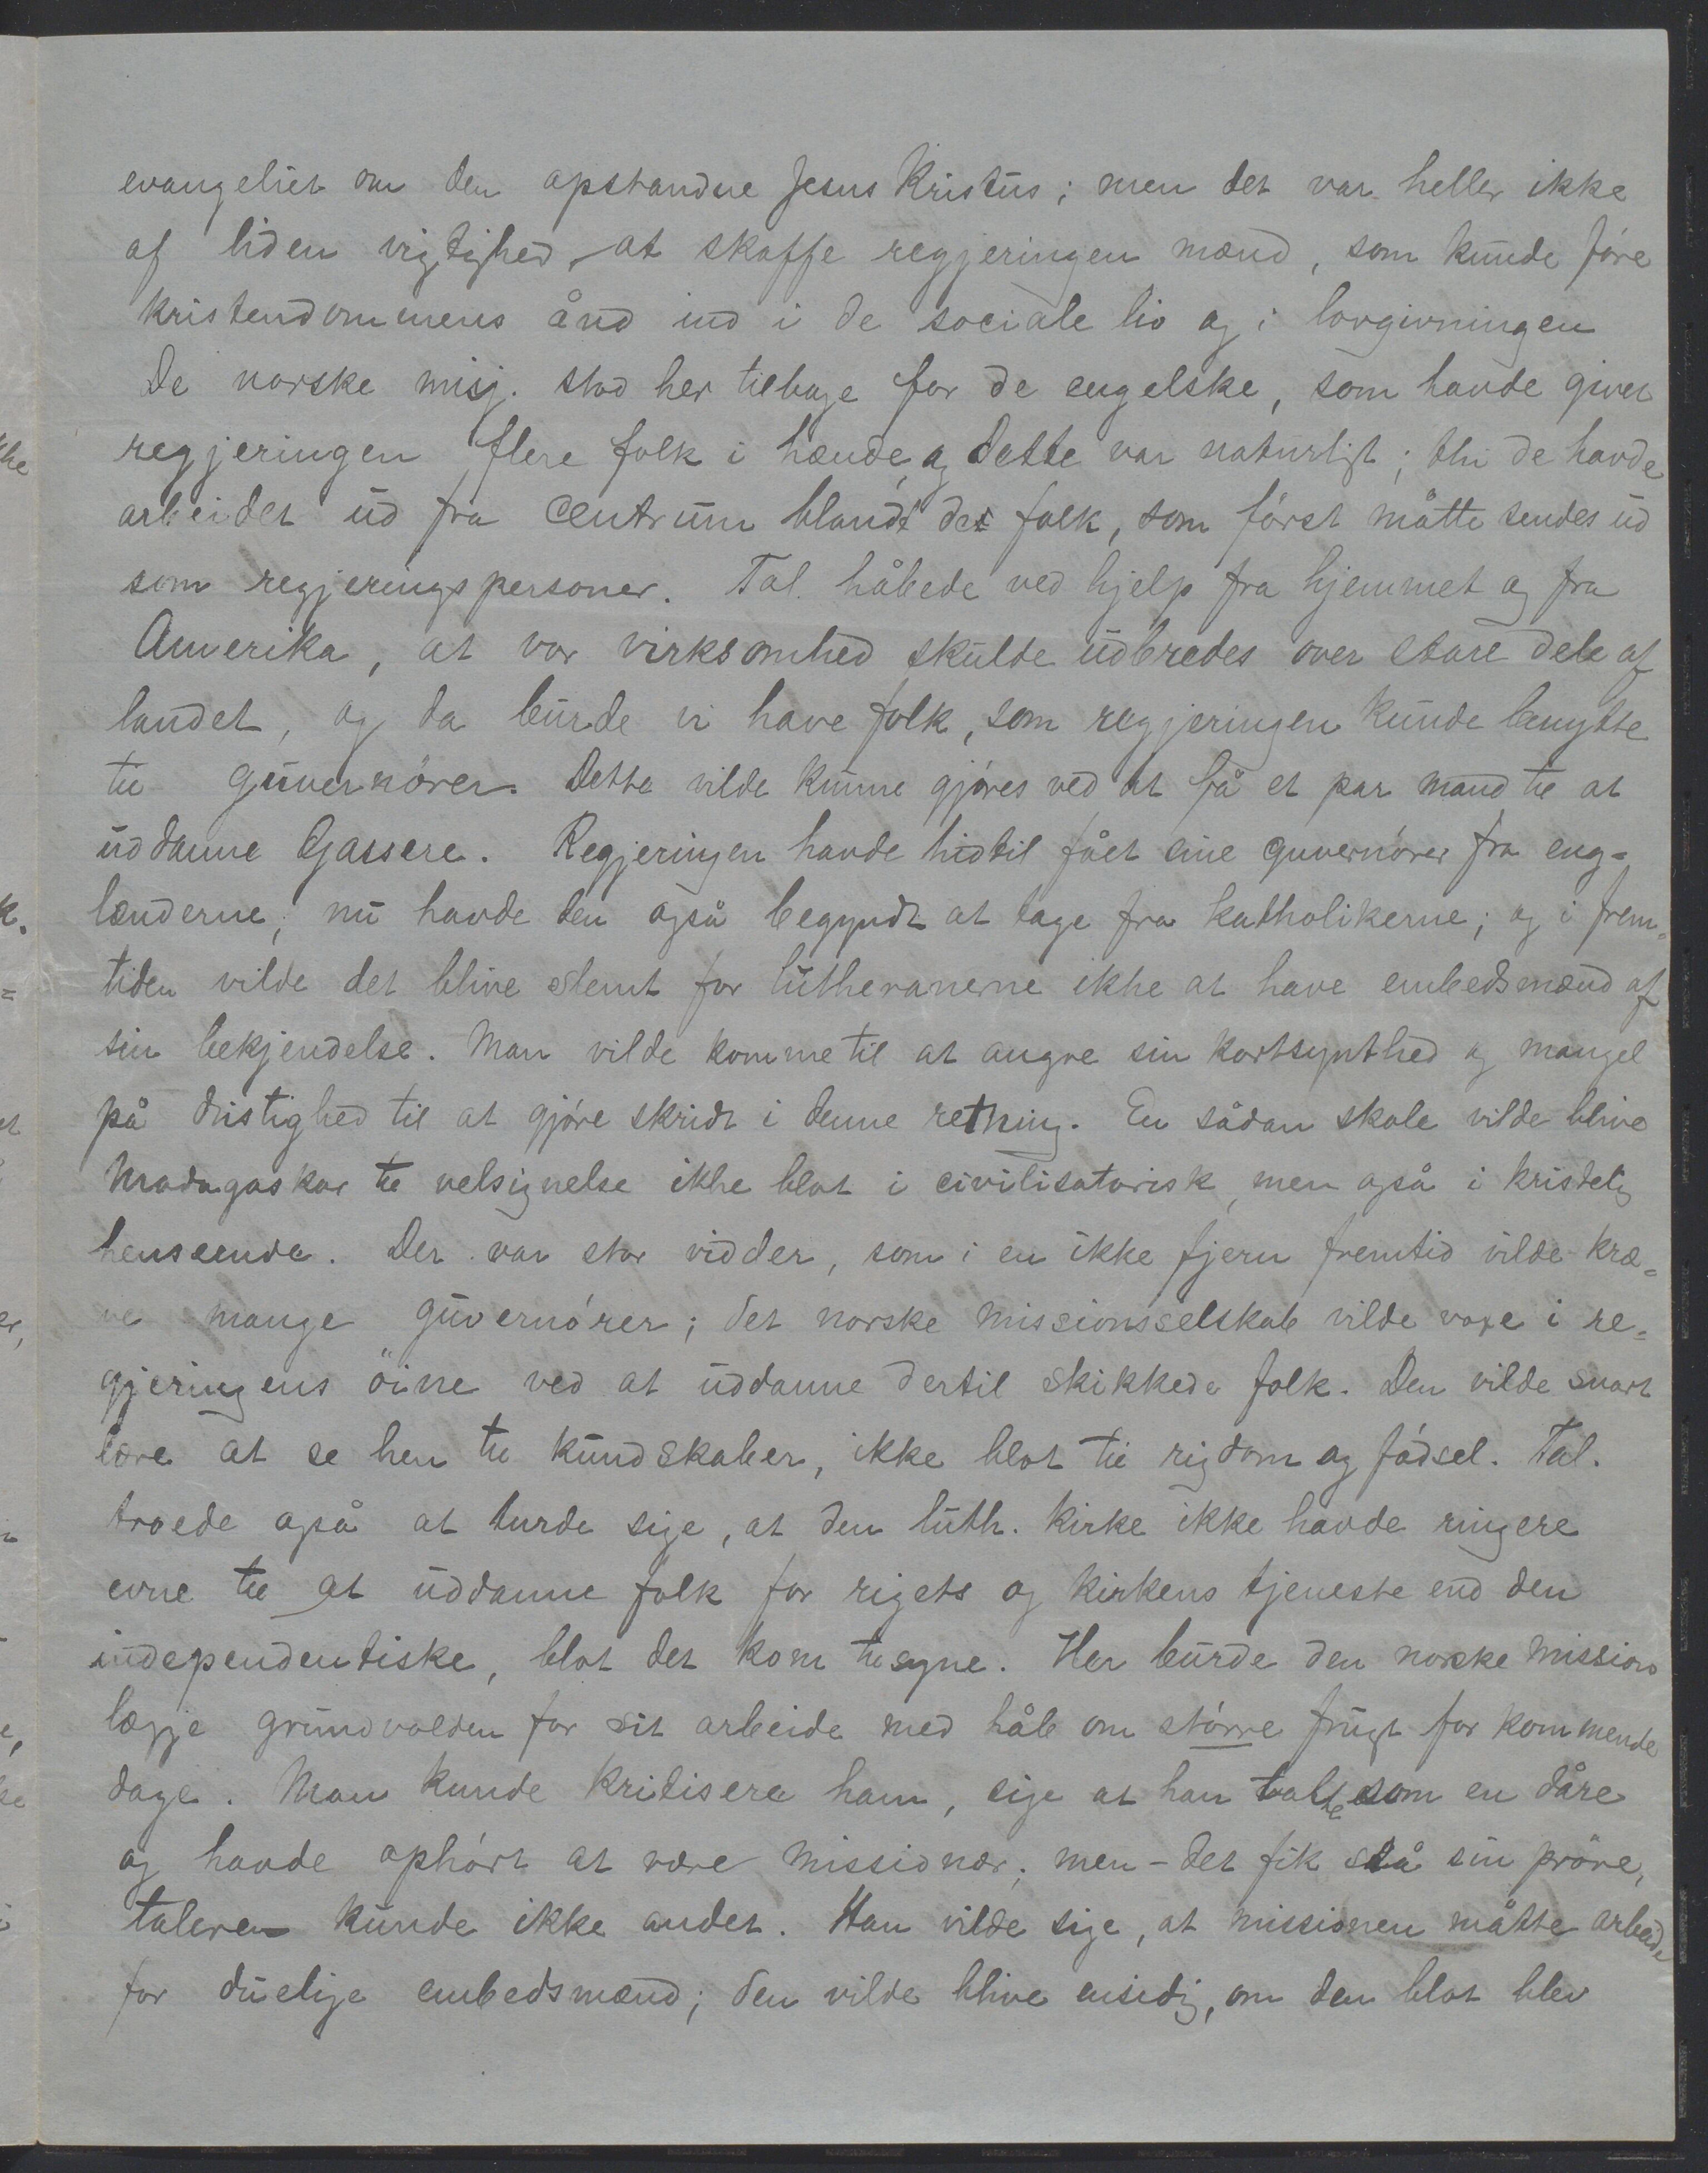 evangeliet om den opstandne Jesus Kristus; men det var heller ikke
af liden vigtighed, at skaffe regjeringen mænd, som kunde føre
kristendommens ånd ind i de sociale liv og i lovgivningen
De norske misj. stod her tilbage for de engelske, som havde givet
regjeringen flere folk i hænde, og dette var naturligt; thi de havde
arbeidet ud fra centrum blandt det folk, som først måtte sendes ud
som regjeringspersoner. Tal. håbede ved hjelp fra hjemmet og fra
Amerika, at vor virksomhed skulde udbredes over store dele af
landet, og da burde vi have folk, som regjeringen kunde benytte
til guvernører. Dette vilde kunne gjøres ved at få et par mand til at
uddanne Gassere. Regjeringen havde hidtil fået sine guvernører fra eng=
lænderne; nu havde den også begyndt at tage fra katholikerne; og i frem=
tiden vilde det blive slemt for lutheranerne ikke at have embedsmænd af
sin bekjendelse. Man vilde komme til at angre sin kortsynthed og mangel
på dristighed til at gjøre skridt i denne retning. En sådan skole vilde blive
Madagaskar til velsignelse ikke blot i civilisatorisk, men også i kristelig
henseende. Der var stor vidder, som i en ikke fjern fremtid vilde kræ=
ve mange guvernører; det norske missionsselskab vilde voxe i re=
gjeringens öine ved at uddanne dertil skikkede folk. Den vilde snart
lære at se hen til kundskaber, ikke blot til rigdom og fødsel. Tal.
troede også at turde sige, at den luth. kirke ikke havde ringere
evne til at uddanne folk for rigets og kirkens tjeneste end den
independentiske, blot det kom tilsyne. Her burde den norske mission
lægge grundvolden for sit arbeide med håb om større frugt for kommende
dage. Man kunde kritisere ham, sige at han talte som en dåre
og havde ophørt at være missionær; men - det fik stå sin prøve,
taleren kunde ikke andet. Han vilde sige, at missionen måtte arbeide
for duelige embedsmænd; den vilde blive ensidig, om den blot blev